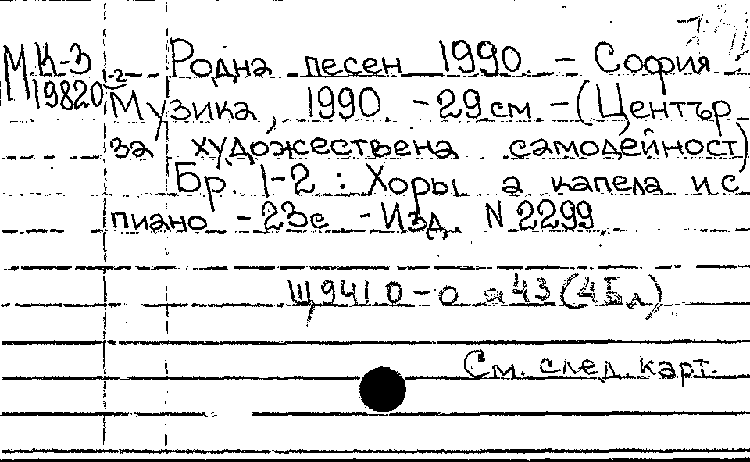 МК-3 Родна песен 1990. - София
19820-2 Музика, 1990. - 29см - (Център
за художествена самодейност)
Бр. 1-2 : Хоры а капела и с
пиано - 23с - Изд. N 2299
Щ941.0-0 я43 (4Бл)
См. след. карт.